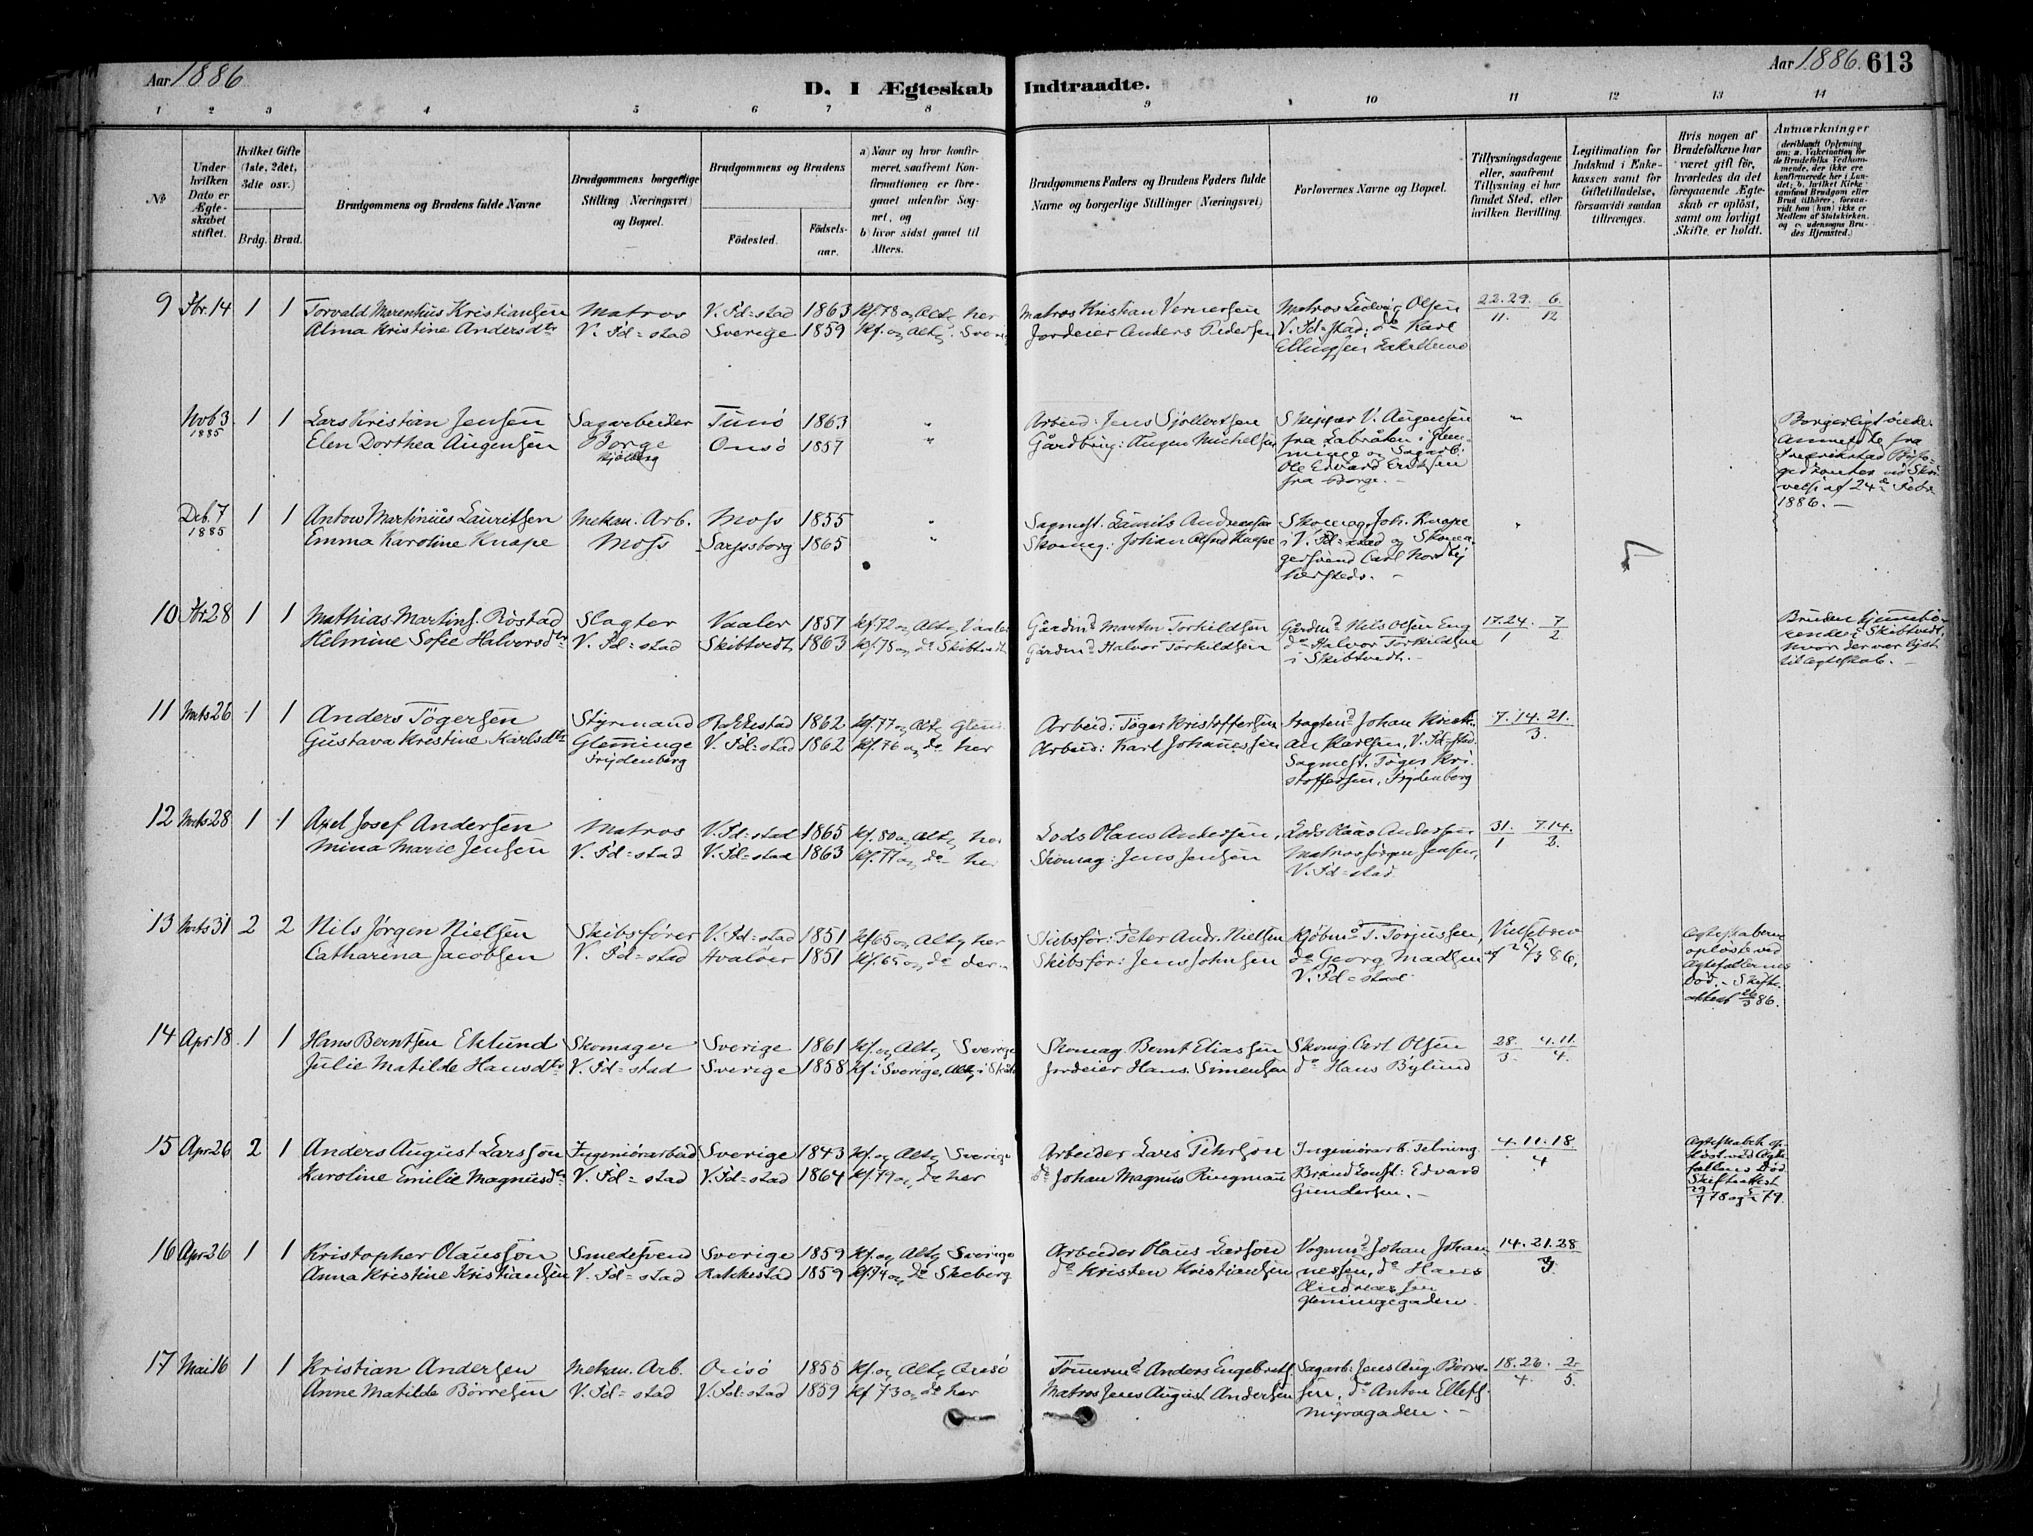 Aar 1886
D. I Ægteskab Indtraadte.
Aar 1886. 613
1 2 3 4 5 6 7 8 9 10 11 12 13 14
No
Under hvilken Dato er Ægteskabet stiftet.
Hvilket Gifte (1ste, 2det, 3die osv.)
Brdg. Brud.
Brudgommens og Brudens fulde Navne
Brudgommens borgerlige Stilling (Næringsvei) og Bopæl.
Brudgommens og Brudens
Fødested. Fødselsaar.
a) Naar og hvor konfirmeret, saafremt Konfirmationen er foregaaet udenfor Sognet, og
b) hvor sidst gaaet til Alters.
Brudgommens Faders og Brudens Faders fulde Navne og borgerlige Stillinger (Næringsvei)
Forlovernes Navne og Bopæl.
Tillysningsdagene eller, saafremt Tillysning ei har fundet Sted, efter hvilken Bevilling.
Legitimation for Indskud i Enkekassen samt for Giftetilladelse, forsaavidt saadan tiltrænges.
Hvis nogen af Brudefolkene har været gift før, hvorledes da det foregaaende Ægteskab er opløst, samt om lovligt Skifte er holdt.
Anmærkninger
9 Fbr. 14 1 1 Torvald Marentius Kristiansen Matros V. Fd=stad 1863 Kf. 78 og Altg her Matros Kristian Vernersen Matros Ludvig Olsen 22. 29. 6
Alma Kristine Andersdtr V. Fd=stad Sverige 1859 Kf. og Altg. Jordeier Anders Pedersen V. Fd=stad; do Karl 11. 12
Ellingsen
Nvb 3 1 1 Lars Kristian Jensen Sagarbeider Tunø 1863 " Arbeid: Jens Sjøllertsen Skipper V. Augensen "
1885 Elen Dorthea Augensen Borge Onsø 1857 " Gårdbrug: Augen Michelsen fra Labråten i Glem-
Kjølberg minge og Sagarb.
Ole Edvard Eriksen
fra Borge. -
Borgerligt viede.
Anmeldte fra
Fredrikstad
24de Febr
1886. -
Dcb. 7 1 1 Anton Martinius Lauritsen Mekan. Arb. Moss 1855 " Sagmest. Laurits Andreassen Skomag. Joh. Knape "
1885 Emma Karoline Knape Moss Sarpsborg 1865 " Skomag: Johan Alfred Knape i V. Fd=stad og Skoma-
gersvend Carl Nordby
hersteds. -
10 Fbr 28 1 1 Mathias Martins. Röstad Slagter Vaaler 1857 Kf. 72 og Altg Vaaler Gårdmd Martin Torkildsen Gårdmd Nils Olsen Eng 17. 24. 7
Helmine Sofie Halvorsdtr V. Fd=stad Skibtvedt 1863 Kf. 78 og do Skibtvedt Gårdmd Halvor Torkildsen do Halvor Torkildsen 1 2
i Skibtvedt. -
Bruden hjemhö-
rende i Skibtvedt,
hvor der var lyst
til Ægteskab. -
11 Mrts 26 1 1 Anders Tögersen Styrmand Rakkestad 1862 Kf. 77 og Altg Glem Arbeid: Töger Kristoffersen Johan Kristi- 7. 14. 21.
Gustava Kristine Karlsdtr Glemminge V. Fd=stad 1862 Kf. 76 og do her Arbeid: Karl Johannessen an Karlsen, V. Fd=stad. 3.
Frydenberg Sagmest. Töger Kri-
stoffersen, Frydenborg
12 Mrts 28 1 1 Axel Josef Andersen Matros V. Fd=stad 1865 Kf. 80 og Altg her Lods Olaus Andersen, Lods Olaus Andersen 31. 7. 14.
Mina Marie Jensen V. Fd=stad V. Fd=stad 1863 Kf. 77 og do her Skomag: Jens Jensen Matros Jörgen Jensen, 1 2.
V. Fd=stad.
13 Mrts 31 2 2 Nils Jörgen Nielsen Skibsfører V. Fd=stad 1851 Kf 65 og Altg her Skibsför: Peter Andr. Nielsen Kjöbmd T. Torjussen, Vielsebrev
Catharina Jacobsen V. Fd=stad Hvaløer 1851 Kf. 65 og do der Skibsför: Jens Johnsen do Georg Madsen af /3 86.
V. Fd=stad.
Ægteskaberne
opløste ved
Ægtefællernes
Död. - Skifte-
attest 26/3 86.
14 Apr 18 1 1 Hans Berntsen Eklund Skomager Sverige 1861 Kf. og Altg Sverige Skomag Bernt Eliassen Skomg Carl Olsen 28. 4. 11.
Julie Matilde Hansdtr V. Fd=stad Sverige 1858 Kf i Sverige, Altg i Jordeier Hans Simensen do Hans Bylund 3. 4.
15 Apr 26 2 1 Anders August Larsson Ingeniörarbeid Sverige 1843 Kf. og Altg Sverige Arbeider Lars Pehrson Ingeniörarb. Tetning 4. 11. 18
Karoline Emilie Magnusdtr V. Fd=stad V. Fd=stad 1864 Kf. 79 og do her do Johan Magnus Ringman Brandkonst: Edvard 4
Gundersen. -
Ægteskabet op-
löst ved Ægte-
fællens Död
Skifteattest
16 Apr 26 1 1 Kristopher Olausson Smedesvend Sverige 1859 Kf. og Altg Sverige Arbeider Olaus Larson Vognmd Johan Johan- 14. 21. 28
Anna Kristine Kristiansen V. Fd=stad Rakkestad 1859 Kf. 74 og do Skeberg do Kristen Kristiansen nessen, do Hans 3
Andreassen
Glemmingegaden.
17 Mai 16 1 1 Kristian Andersen Mekan. Arb. Onsö 1855 Kf. og Altg Onsö Tömmermd Anders Engebrets. Sagarb. Jens Aug. Börre- 18. 26. 2
Anne Matilde Börresen V. Fd=stad V. Fd=stad 1859 Kf 73 og do her Matros Jens August Andersen sen, do Anton Ellefs. 4. 5.
Myragaden. -